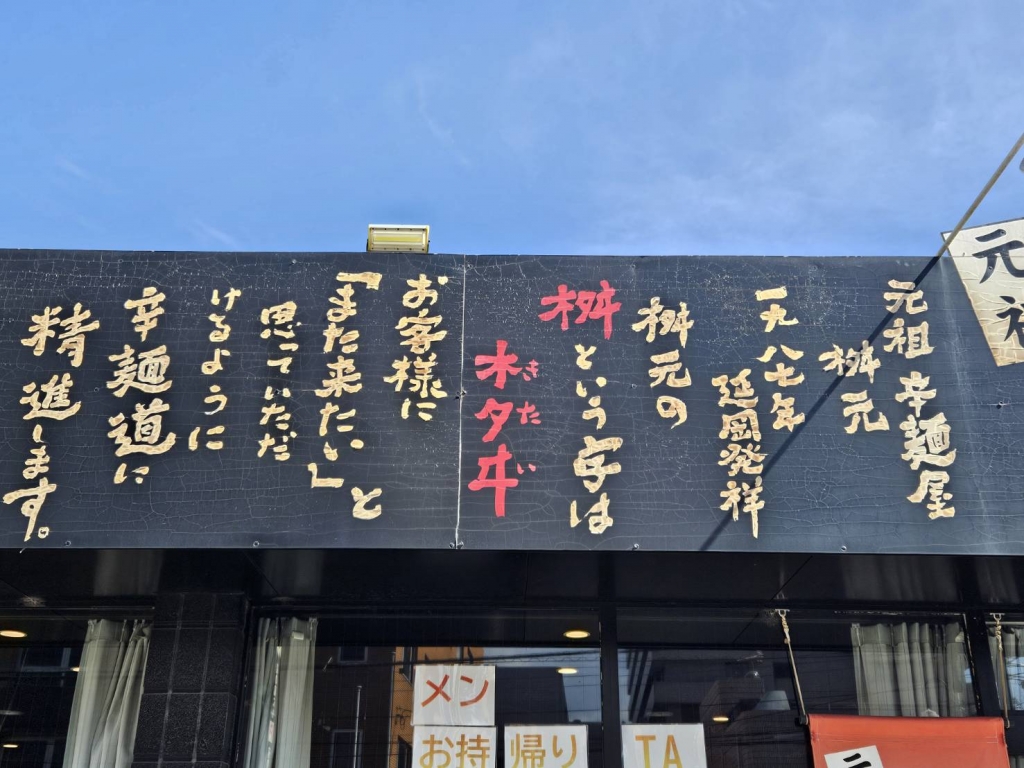 元祖 辛麺屋
桝元
一九八七年
延岡発祥
桝元の
桝という字は
木タヰ
きたい
お客様に
「また来たい」と
思っていただ
けるように
辛麺道に
精進します。
元祖
メン
お持 帰り TA
元